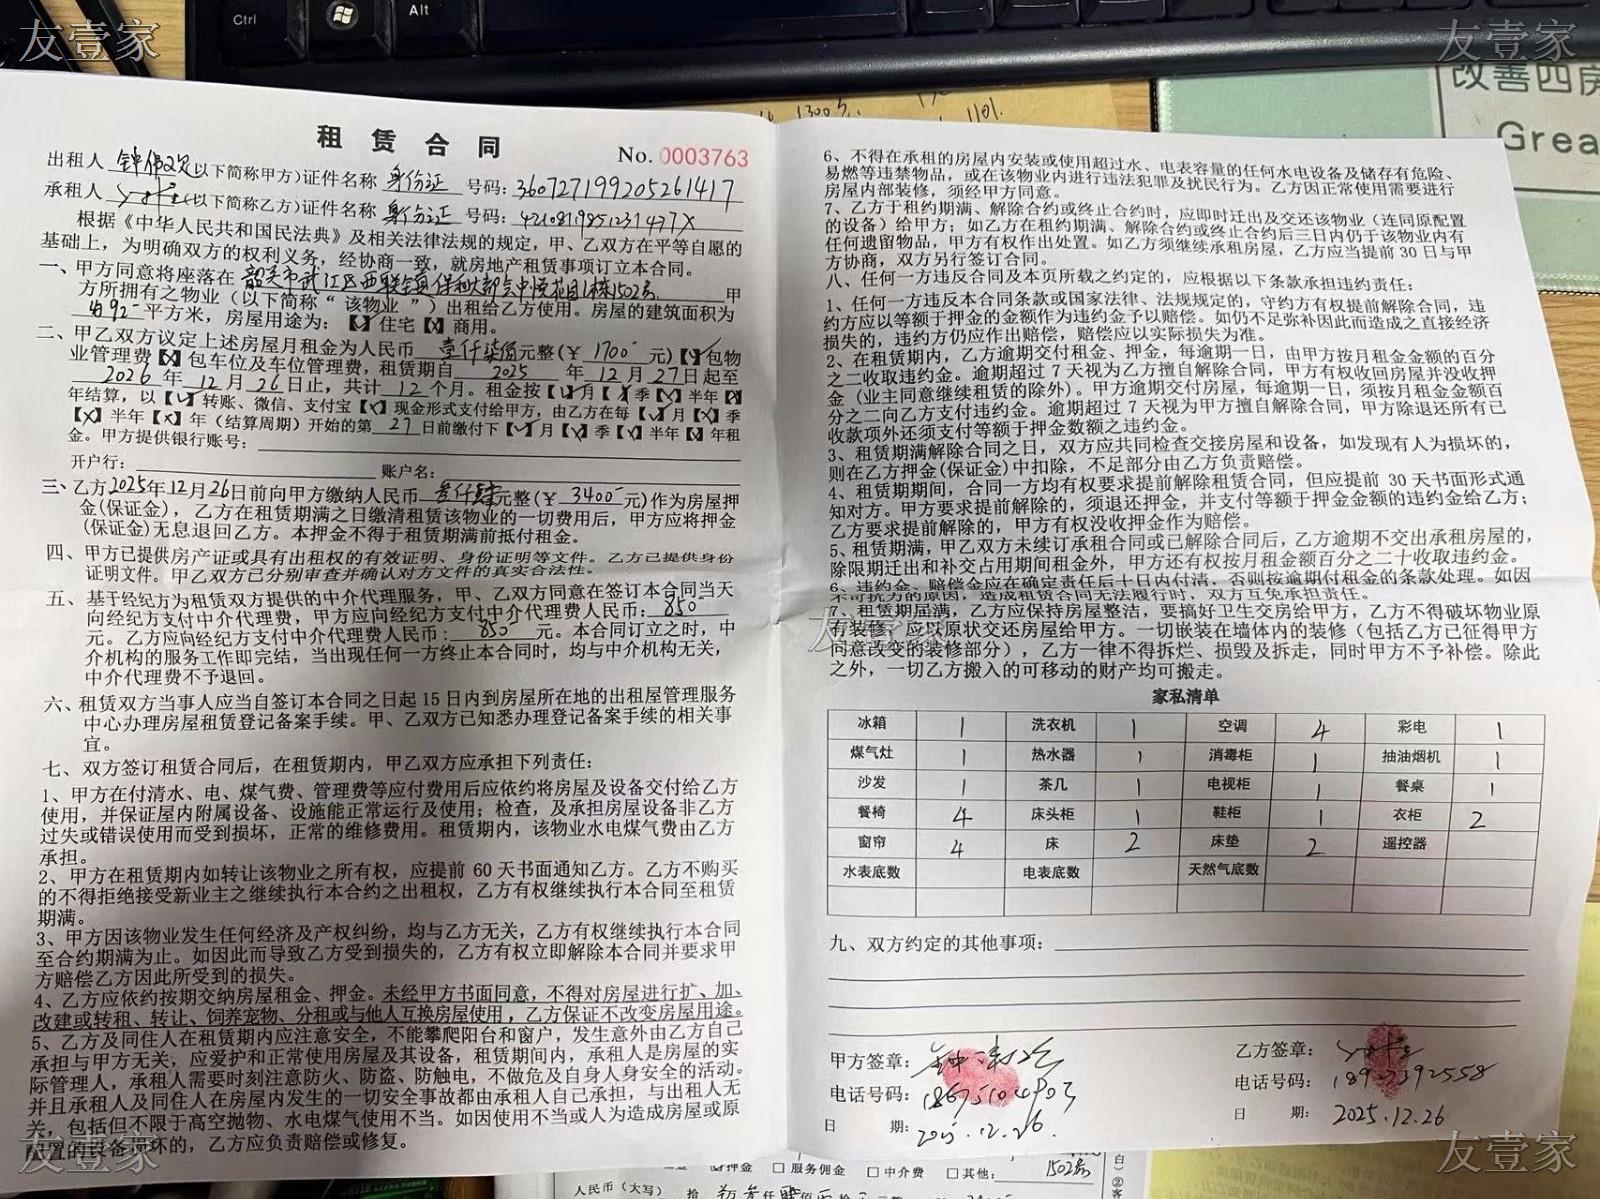 友壹家
友壹家
Ctrl
Alt
改善四房
Grea
1300
1101.
租赁合同
No. 0003763
出租人 以下简称甲方)证件名称 身份证 号码: 360727199205261417
承租人 (以下简称乙方)证件名称 身份证 号码: 42108119851231477X
根据《中华人民共和国民法典》及相关法律法规的规定，甲、乙双方在平等自愿的
基础上，为明确双方的权利义务，经协商一致，就房地产租赁事项订立本合同。
一、甲方同意将座落在 韶关市武江区西联镇保利大都会中悦花园1栋1502房 甲
方所拥有之物业（以下简称“该物业”）出租给乙方使用。房屋的建筑面积为
约92 平方米，房屋用途为：【√】住宅【X】商用。
二、甲乙双方议定上述房屋月租金为人民币 壹仟柒佰 元整(￥ 1700 元)【√】包物
业管理费【X】包车位及车位管理费，租赁期自 2025 年 12 月 27 日起至
2026 年 12 月 26 日止，共计 12 个月。租金按【√】月【X】季【X】半年【X】
年结算，以【√】转账、微信、支付宝【X】现金形式支付给甲方，由乙方在每【√】月【X】季
【X】半年【X】年（结算周期）开始的第 27 日前缴付下【√】月【X】季【X】半年【X】年租
金。甲方提供银行账号：
开户行： 账户名：
三、乙方2025年12月26日前向甲方缴纳人民币 叁仟肆 元整(￥ 3400 元)作为房屋押
金(保证金)，乙方在租赁期满之日缴清租赁该物业的一切费用后，甲方应将押金
(保证金)无息退回乙方。本押金不得于租赁期满前抵付租金。
四、甲方已提供房产证或具有出租权的有效证明、身份证明等文件。乙方已提供身份
证明文件。甲乙双方已分别审查并确认对方文件的真实合法性。
五、基于经纪方为租赁双方提供的中介代理服务，甲、乙双方同意在签订本合同当天
向经纪方支付中介代理费，甲方应向经纪方支付中介代理费人民币： 850
元。乙方应向经纪方支付中介代理费人民币： 850 元。本合同订立之时，中
介机构的服务工作即完结，当出现任何一方终止本合同时，均与中介机构无关，
中介代理费不予退回。
六、租赁双方当事人应当自签订本合同之日起 15 日内到房屋所在地的出租屋管理服务
中心办理房屋租赁登记备案手续。甲、乙双方已知悉办理登记备案手续的相关事
宜。
七、双方签订租赁合同后，在租赁期内，甲乙双方应承担下列责任：
1、甲方在付清水、电、煤气费、管理费等应付费用后应依约将房屋及设备交付给乙方
使用，并保证屋内附属设备、设施能正常运行及使用；检查，及承担房屋设备非乙方
过失或错误使用而受到损坏，正常的维修费用。租赁期内，该物业水电煤气费由乙方
承担。
2、甲方在租赁期内如转让该物业之所有权，应提前 60 天书面通知乙方。乙方不购买
的不得拒绝接受新业主之继续执行本合约之出租权，乙方有权继续执行本合同至租赁
期满。
3、甲方因该物业发生任何经济及产权纠纷，均与乙方无关，乙方有权继续执行本合同
至合约期满为止。如因此而导致乙方受到损失的，乙方有权立即解除本合同并要求甲
方赔偿乙方因此所受到的损失。
4、乙方应依约按期交纳房屋租金、押金。未经甲方书面同意，不得对房屋进行扩、加、
改建或转租、转让、饲养宠物、分租或与他人互换房屋使用，乙方保证不改变房屋用途。
5、乙方及同住人在租赁期内应注意安全，不能攀爬阳台和窗户，发生意外由乙方自己
承担与甲方无关，应爱护和正常使用房屋及其设备，租赁期间内，承租人是房屋的实
际管理人，承租人需要时刻注意防火、防盗、防触电，不做危及自身人身安全的活动。
并且承租人及同住人在房屋内发生的一切安全事故都由承租人自己承担，与出租人无
关，包括但不限于高空抛物、水电煤气使用不当。如因使用不当或人为造成房屋或原
配置的设备损坏的，乙方应负责赔偿或修复。
6、不得在承租的房屋内安装或使用超过水、电表容量的任何水电设备及储存有危险、
易燃等违禁物品，或在该物业内进行违法犯罪及扰民行为。乙方因正常使用需要进行
房屋内部装修，须经甲方同意。
7、乙方于租约期满、解除合约或终止合约时，应即时迁出及交还该物业（连同原配置
的设备）给甲方；如乙方在租约期满、解除合约或终止合约后三日内仍于该物业内有
任何遗留物品，甲方有权作出处置。如乙方须继续承租房屋，乙方应当提前 30 日与甲
方协商，双方另行签订合同。
八、任何一方违反合同及本页所载之约定的，应根据以下条款承担违约责任：
1、任何一方违反本合同条款或国家法律、法规规定的，守约方有权提前解除合同，违
约方应以等额于押金的金额作为违约金予以赔偿。如仍不足弥补因此而造成之直接经济
损失的，违约方仍应作出赔偿，赔偿应以实际损失为准。
2、在租赁期内，乙方逾期交付租金、押金，每逾期一日，由甲方按月租金金额的百分
之二收取违约金。逾期超过 7 天视为乙方擅自解除合同，甲方有权收回房屋并没收押
金（业主同意继续租赁的除外)。甲方逾期交付房屋，每逾期一日，须按月租金金额百
分之二向乙方支付违约金。逾期超过 7 天视为甲方擅自解除合同，甲方除退还所有已
收款项外还须支付等额于押金数额之违约金。
3、租赁期满解除合同之日，双方应共同检查交接房屋和设备，如发现有人为损坏的，
则在乙方押金(保证金)中扣除，不足部分由乙方负责赔偿。
4、租赁期期间，合同一方均有权要求提前解除租赁合同，但应提前 30 天书面形式通
知对方。甲方要求提前解除的，须退还押金，并支付等额于押金金额的违约金给乙方；
乙方要求提前解除的，甲方有权没收押金作为赔偿。
5、租赁期满，甲乙双方未续订承租合同或已解除合同后，乙方逾期不交出承租房屋的，
除限期迁出和补交占用期间租金外，甲方还有权按月租金额百分之二十收取违约金。
6、违约金、赔偿金应在确定责任后十日内付清，否则按逾期付租金的条款处理。如因
不可抗力的原因，造成租赁合同无法履行时，双方互免承担责任。
7、租赁期届满，乙方应保持房屋整洁，要搞好卫生交房给甲方，乙方不得破坏物业原
有装修，应以原状交还房屋给甲方。一切嵌装在墙体内的装修（包括乙方已征得甲方
同意改变的装修部分），乙方一律不得拆烂、损毁及拆走，同时甲方不予补偿。除此
之外，一切乙方搬入的可移动的财产均可搬走。
友壹家
家私清单
冰箱 1 洗衣机 1 空调 4 彩电 1
煤气灶 1 热水器 1 消毒柜 1 抽油烟机 1
沙发 1 茶几 1 电视柜 1 餐桌 1
餐椅 4 床头柜 1 鞋柜 1 衣柜 2
窗帘 4 床 2 床垫 2 遥控器
水表底数 电表底数 天然气底数
九、双方约定的其他事项：
甲方签章： 乙方签章：
电话号码： 电话号码： 18927392558
日 期： 2025.12.26. 日 期： 2025.12.26
押金 □ 服务佣金 □ 中介费 □ 其他： 1502房
人民币（大写）
白）②客
友壹家
友壹家